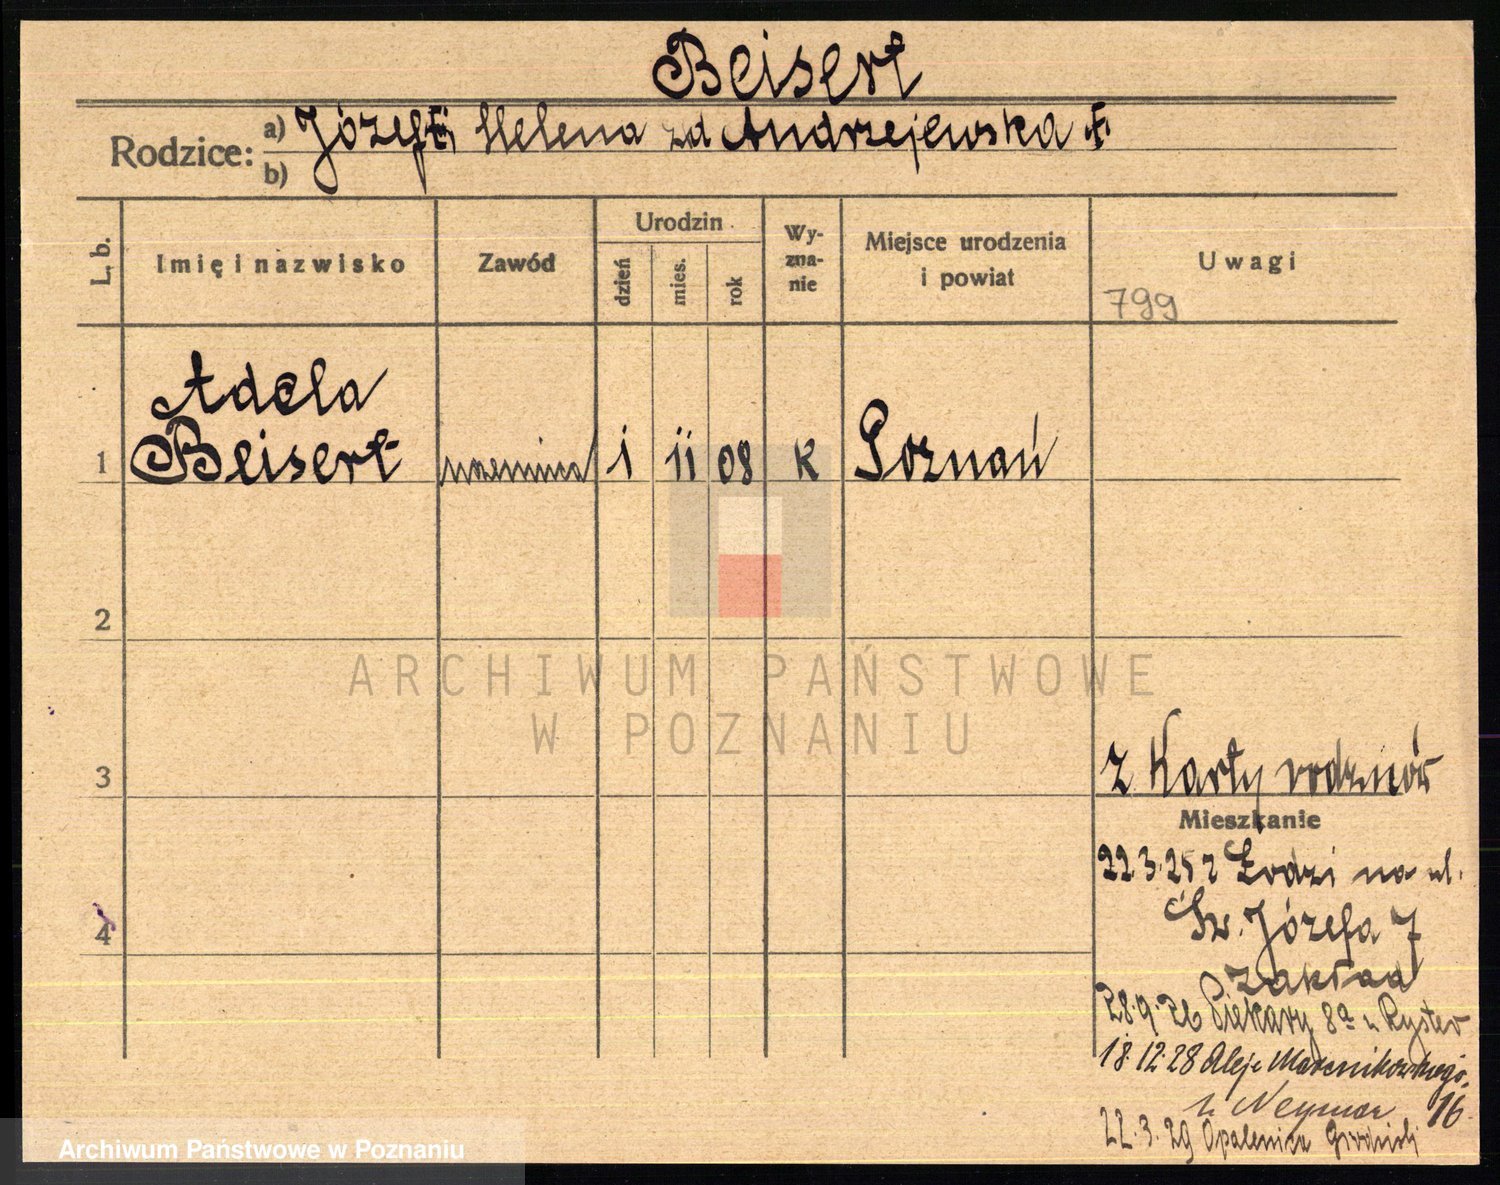 Beisert
Rodzice: a) Józef † i Helena zd Andrzejewska †
b)
L. b.
Imię i nazwisko
Zawód
Urodzin
dzień
mies.
rok
Wy-
zna-
nie
Miejsce urodzenia
i powiat
Uwagi
799
Adela
1 Beisert uczennica 1 11 08 K Poznań
2
ARCHIWUM PAŃSTWOWE
W POZNANIU
3
z Karty rodziców
Mieszkanie
22.3.25 z Łodzi na ul.
Św. Józefa 7
zakład
4
28.9.26 Piekary 8a u Ryster
18.12.28 Aleje Marcinkowskiego
u Neyman 16
22.3.29 Opalenica Grodzisk
Archiwum Państwowe w Poznaniu